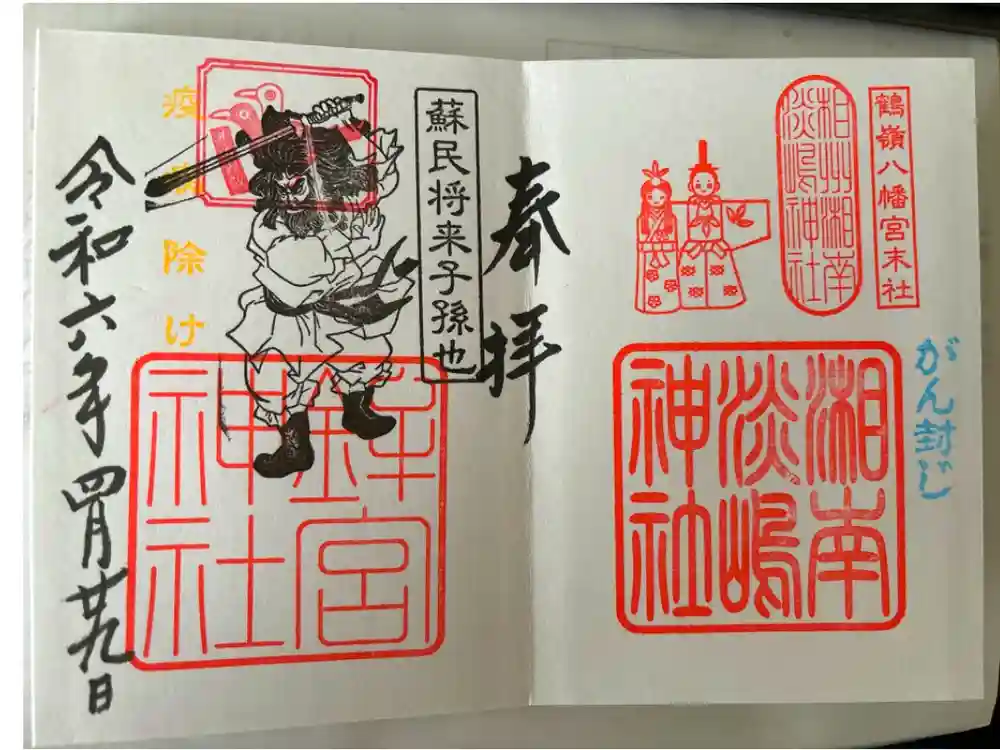 鶴嶺八幡宮末社
相州湘南
淡嶋神社
がん封じ
湘南
淡嶋
神社
奉拝
蘇民将来子孫也
疫病除け
鉾宮
神社
令和六年四月廿九日